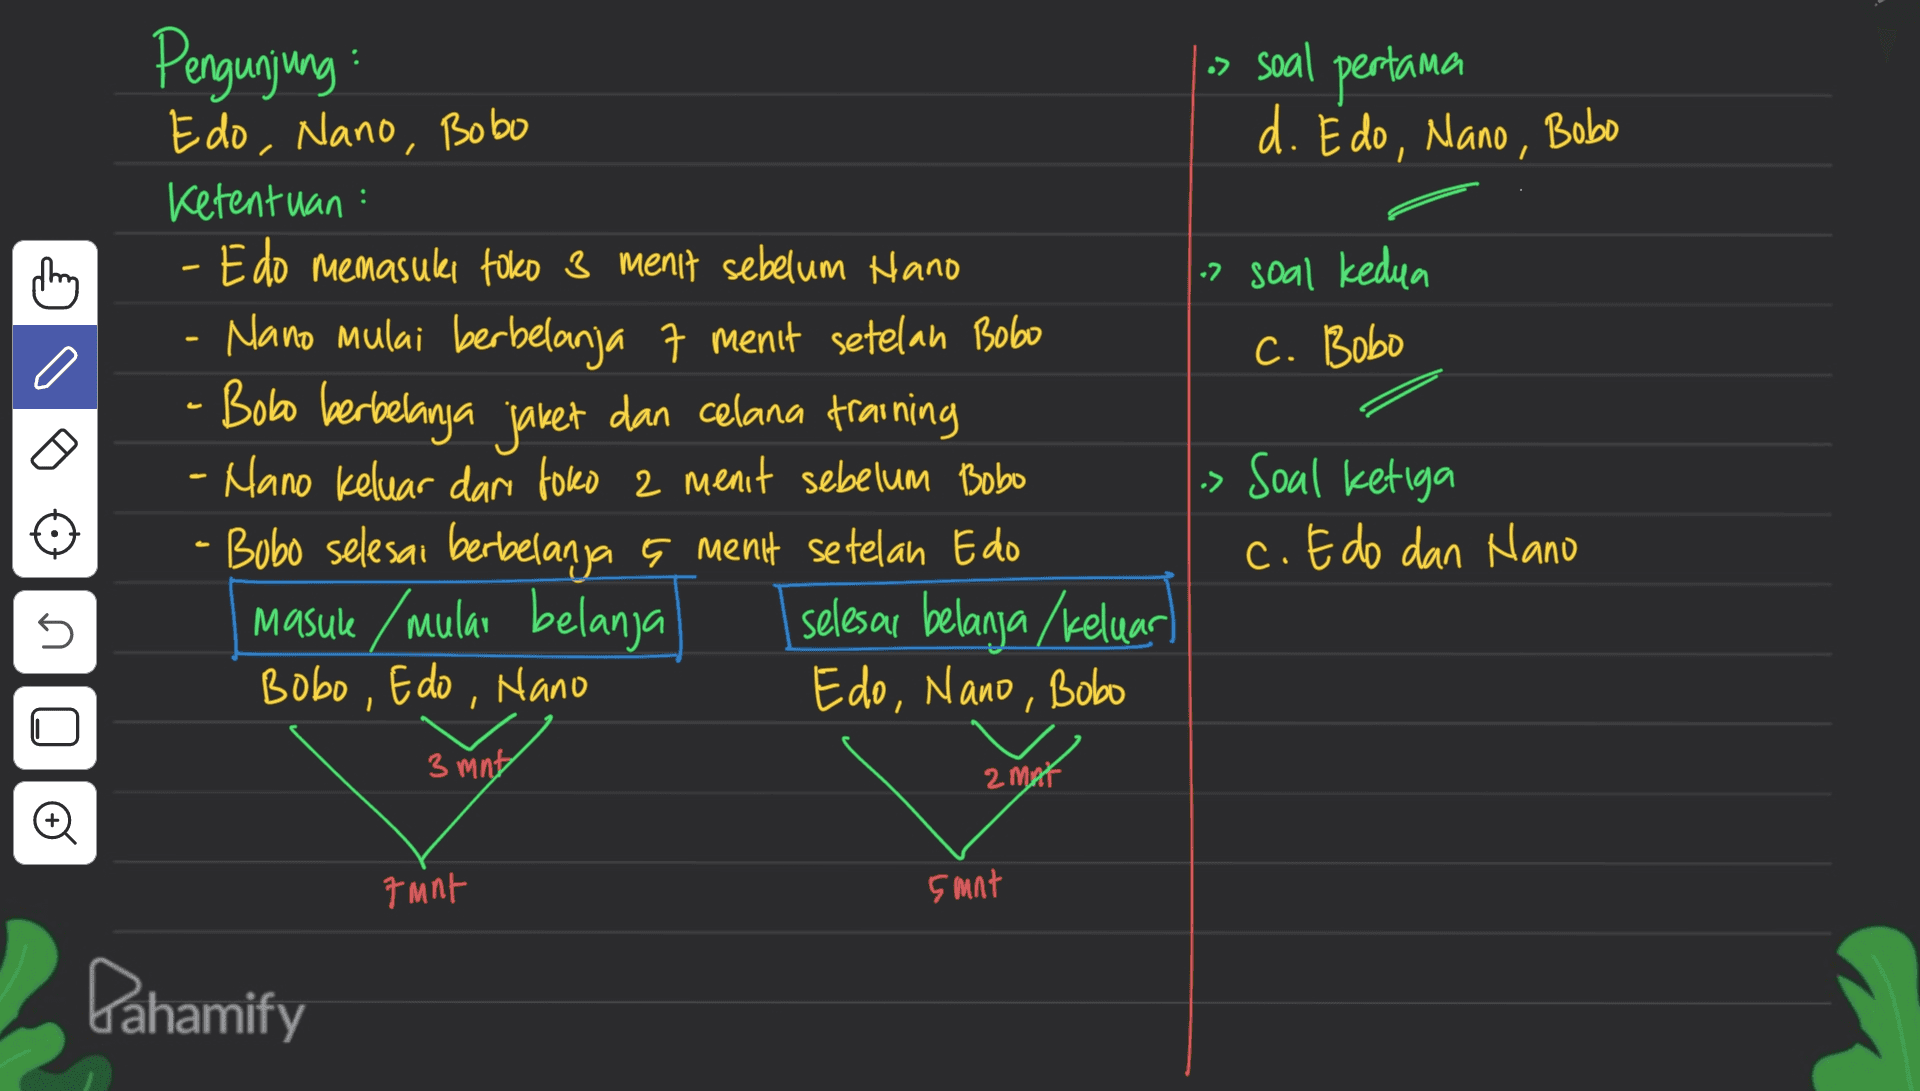 Pengunjung :
Edo, Nano, Bobo
Ketentuan :
- Edo memasuki toko 3 menit sebelum Nano
- Nano mulai berbelanja 7 menit setelah Bobo
- Bobo berbelanja jaket dan celana training
- Nano keluar dari toko 2 menit sebelum Bobo
- Bobo selesai berbelanja 5 menit setelah Edo
masuk / mulai belanja
selesai belanja / keluar
Bobo, Edo, Nano
Edo, Nano, Bobo
3 mnt
2 mnt
7 mnt
5 mnt
.> soal pertama
d. Edo, Nano, Bobo
.> soal kedua
c. Bobo
.> Soal ketiga
c. Edo dan Nano
Pahamify